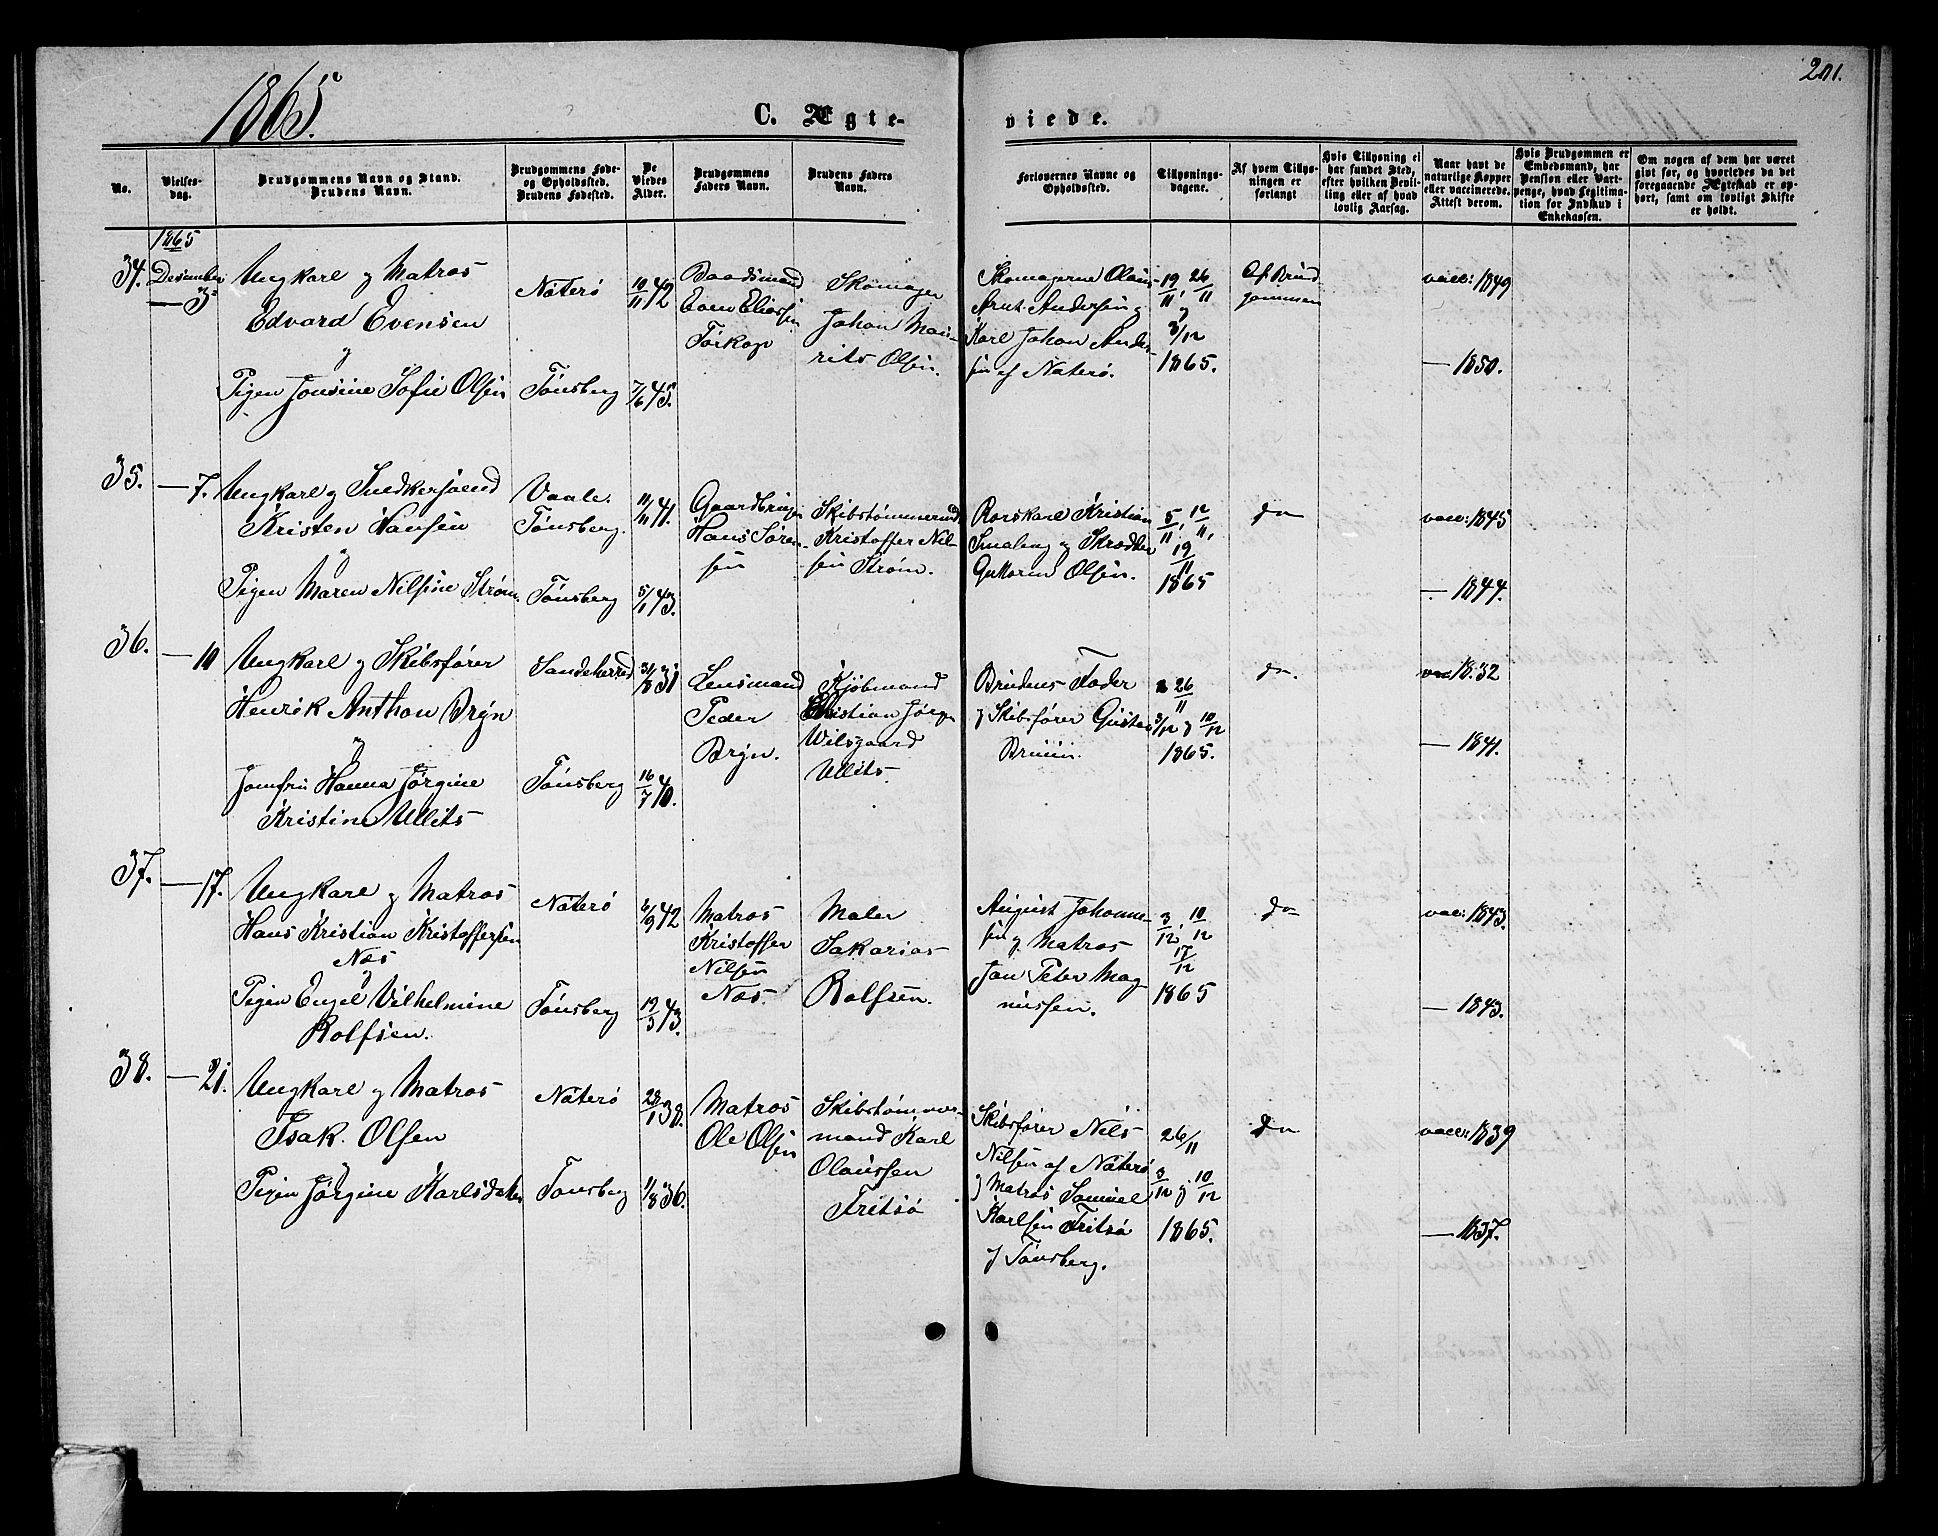 1865.
C. Ægte-
viede.
201.
No.
Vielses-
dag.
Brudgommens Navn og Stand.
Brudens Navn.
Brudgommens Føde-
og Opholdssted.
Brudens Fødested.
De
Viedes
Alder.
Brudgommens
Faders Navn.
Brudens Faders
Navn.
Forlovernes Navne og
Opholdssted.
Tillysnings-
dagene.
Af hvem Tillys-
ningen er
forlangt
Hvis Tillysning ei
har fundet Sted,
efter hvilken Bevil-
ling eller af hvad
lovlig Aarsag.
Naar havt de
naturlige Kopper
eller vaccinerede.
Attest derom.
Hvis Brudgommen er
Embedsmand, har
Pension eller Vart-
penge, hvad Legitima-
tion for Indskud i
Enkekassen.
Om nogen af dem har været
givt før, og hvorledes da det
foregaaende Ægteskab er op-
hørt, samt om lovligt Skifte
er holdt.
34.
1865
Desember
— 3
Ungkarl og Matros
Edvard Evensen
og
Pigen Jonsine Sofie Olsen
Nøterø
Tønsberg
10/11 42
7/6 45.
Baadsmand
Even Eliassen
Skomager
Johan Mau-
rits Olsen.
Skomagerne Olaus
Arnt Andersen og
Karl Johan Ander-
sen af Nøterø.
19/11, 26/11
og
3/12
1865.
Af Brud
gommen
vacc: 1849
— 1850.
35.
— 7.
Ungkarl og Snedkersvend
Kristen Hansen
og
Pigen Maren Nilsine Strøm.
Vaale.
Tønsberg.
Tønsberg
11/11 41.
5/1 43.
Gaardbruger
Hans Søren-
sen
Skibstømmermd
Kristoffer Nil-
sen Strøm.
Kristian
Smaleng og Skrædder
Guttorm Olsen.
5/11, 12/11,
19/11
1865
do
vacc: 1845
— 1844.
36.
— 10
Ungkarl og Skibsfører
Henrik Anthon Bryn
og
Jomfru Hanna Jørgine
Kristine Ullits
Sandeherred
Tønsberg
31/8 31
16/7 40.
Lensmand
Peder
Bryn.
Kjøbmand
Kristian Jørgen
Wilsgaard
Ullits.
Brudens Fader
og Skibsfører Gustav
Bruun.
26/11
3/12 og 10/12
1865.
do.
vac 1832
— 1841.
37.
— 17.
Ungkarl og Matros
Hans Kristian Kristoffersen
Næs
og
Pigen Engel Vilhelmine
Rolfsen.
Nøterø
Tønsberg
6/9 42
12/3 43.
Matros
Kristoffer
Nilsen
Næs.
Maler
Sakarias
Rolfsen.
August Johanne-
sen og Matros
Jan Peter Mag
nussen.
3/12, 10/12
17/12
1865
do
vacc: 1843.
— 1843.
38.
— 21.
Ungkarl og Matros
Isak. Olsen
og
Pigen Jørgine Karlsdatter
Nøterø
Tønsberg
28/1 38.
11/8 36.
Matros
Ole Olsen
Skibstømmer-
mand Karl
Olaussen
Fritsø
Skibsfører Nils
Nilsen af Nøterø
og Matros Samuel
Karlsen Fritsø
af Tønsberg.
26/11
3/12 og 10/12
1865.
do
vacc: 1839
— 1837.